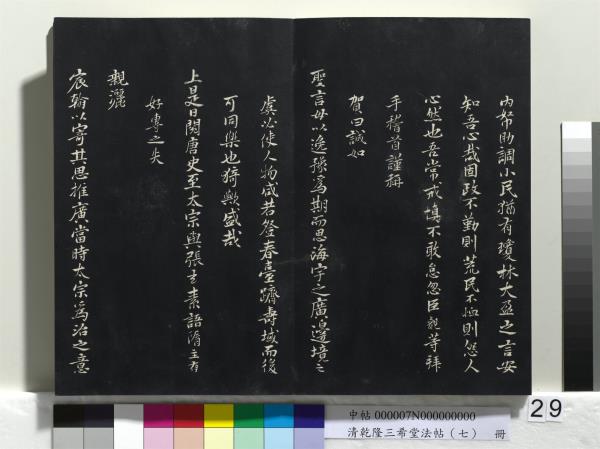 內帑助調小民猶有瓊林大盈之言安
知吾心哉固政不勤則荒民不恤則怨人
心然也吾常戒慎不敢怠忽臣 等拜
手稽首謹稱
賀曰誠如
聖言毋以逸豫為期而思海宇之廣邊境之
虞必使人物咸若登春臺躋壽域而後
可同樂也猗歟盛哉
上是日閱唐史至太宗與張玄素語隋主有
好專之失
親灑
宸翰以寄其思推廣當時太宗為治之意
29
中帖 000007N000000000
清乾隆三希堂法帖（七） 冊